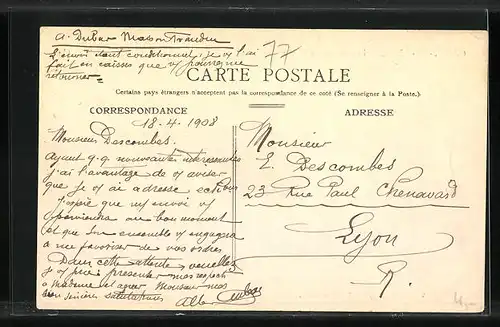 A. Dubar Maison Trandin
L'envoi étant conditionnel, je v/ l'ai
fait en caisses que v/ pourrez me
retourner
77
CARTE POSTALE
Certains pays étrangers n'acceptent pas la correspondance de ce coté (Se renseigner à la Poste.)
CORRESPONDANCE
ADRESSE
18-4-1908
Monsieur Descombes.
Ayant q.q. nouveautés intéressantes
j'ai l'avantage de v/ aviser
que je v/ ai adressé
J'espère que m/ envoi v/
parviendra en bon moment
et que son ensemble v/ engagera
à me favoriser de vos ordres
Dans cette attente veuillez
je v/ prie présenter mes respects
à Madame et agréer Monsieur mes
bien sincères salutations
Monsieur
E. Descombes
23 Rue Paul Chenavard
Lyon
R.